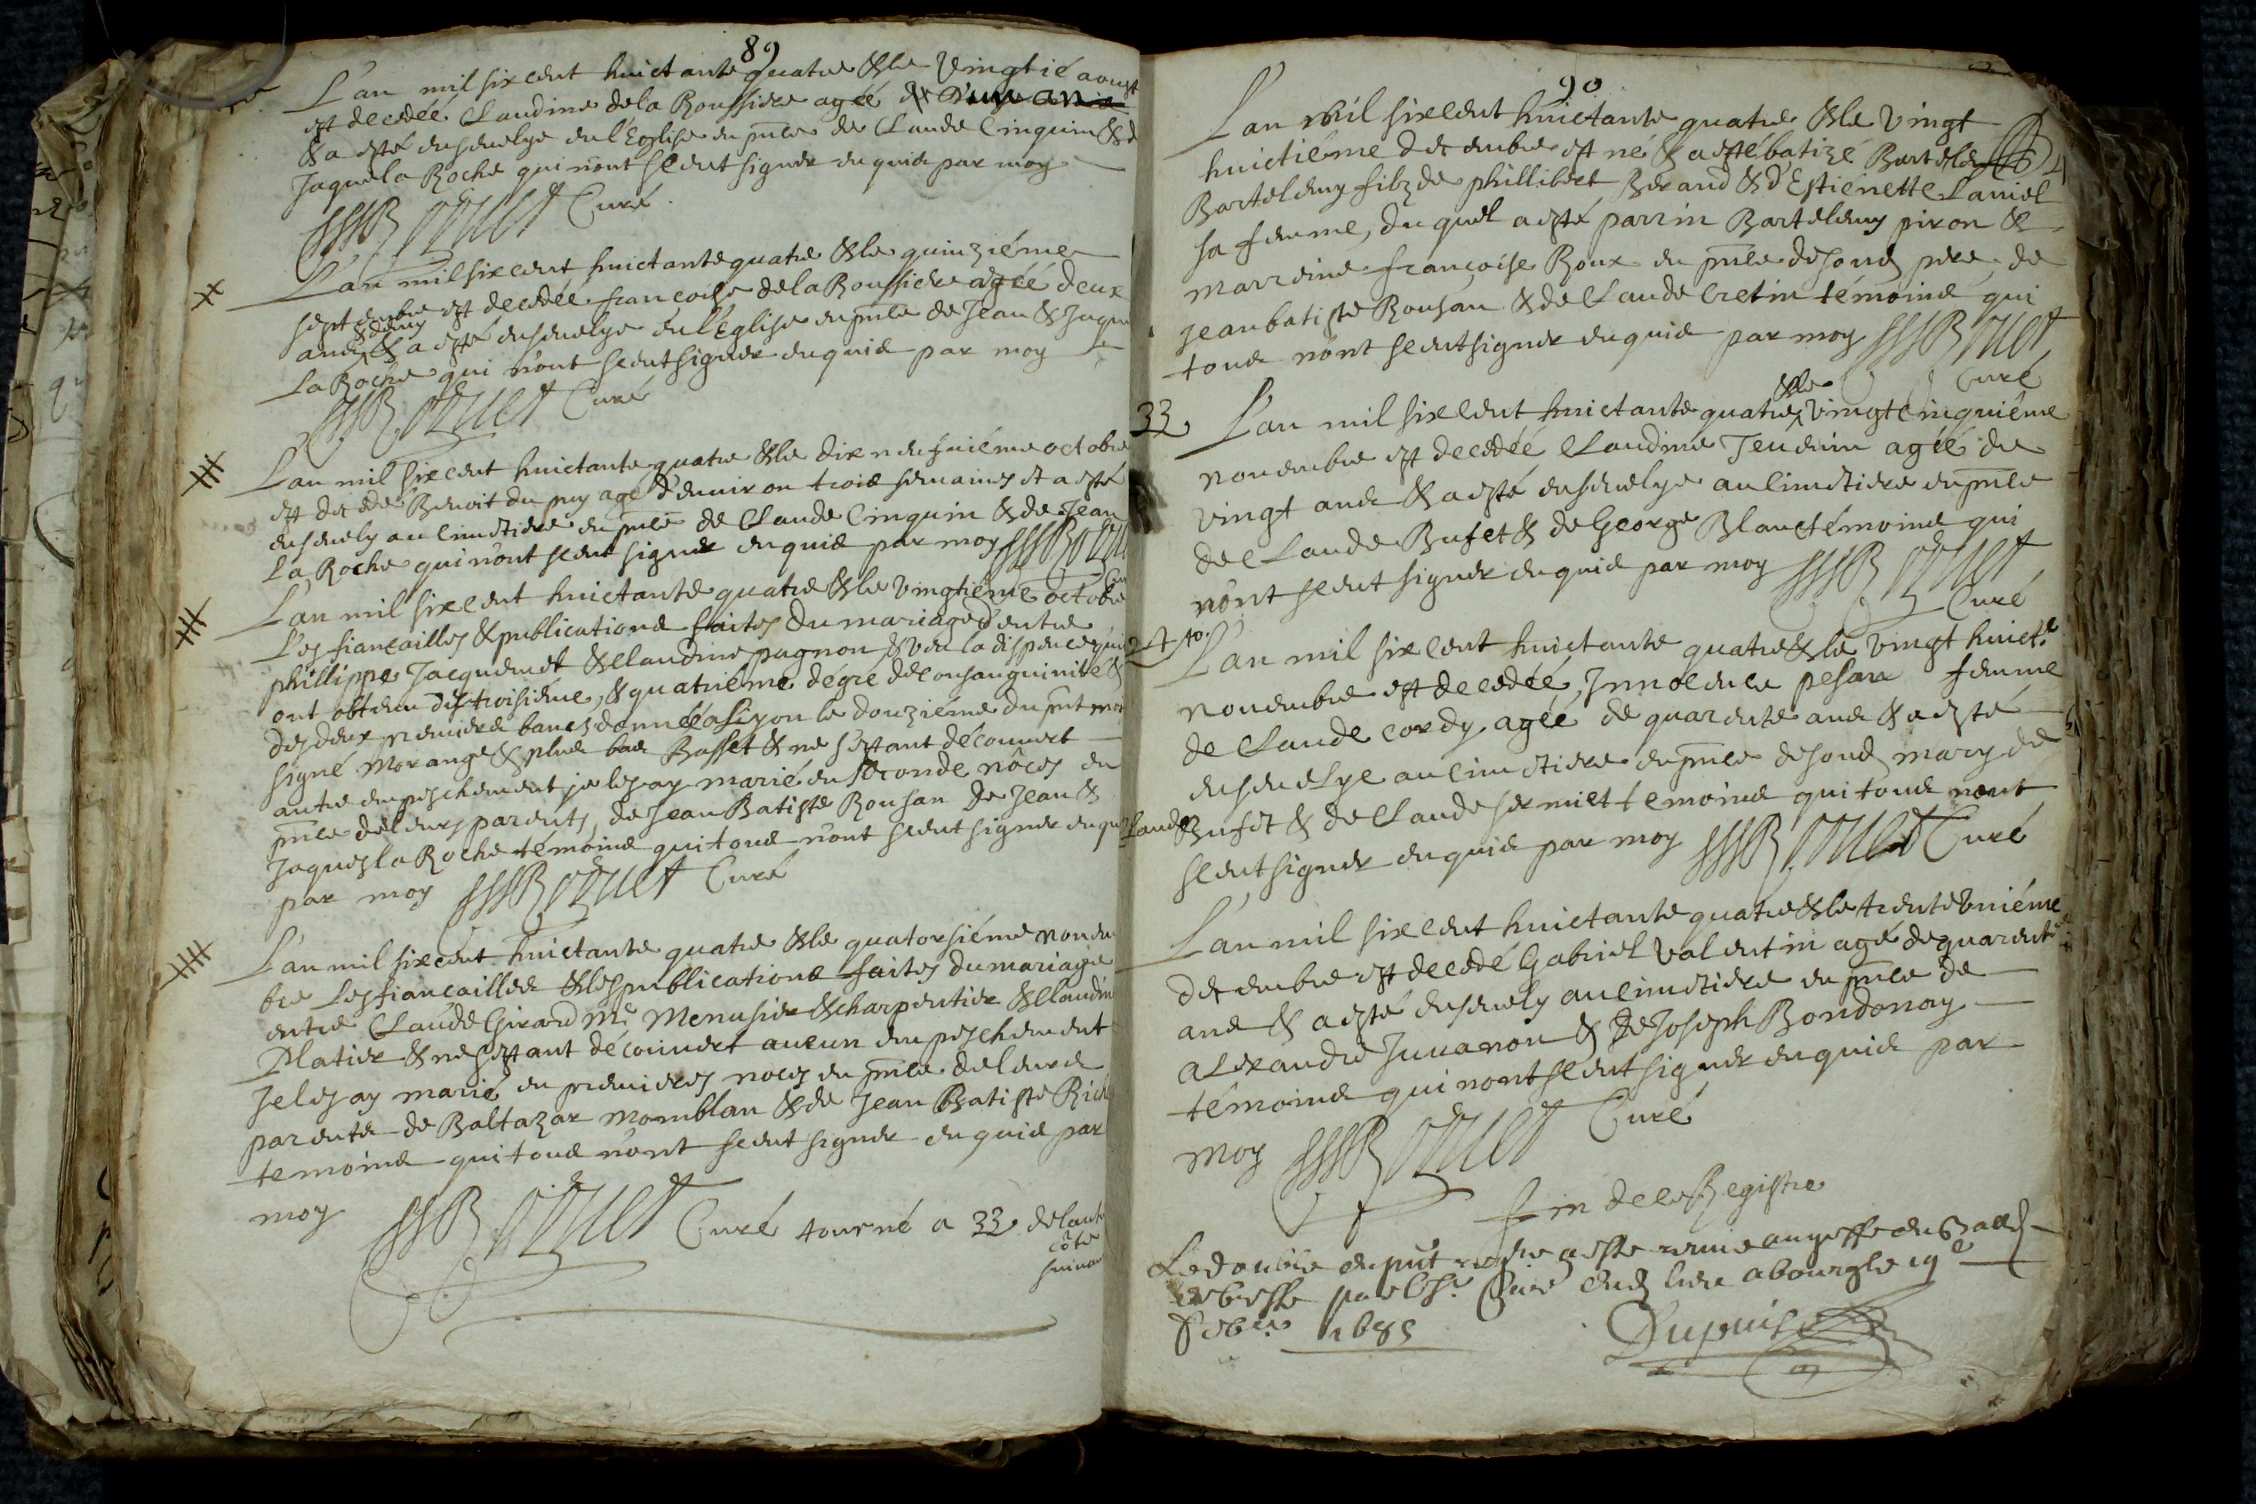 89
L'an mil six cent huictante quatre & le vingtié aoust
est decedéé Claudine de la Roussiere agéé
& a esté ensevelye en l'Eglise en pnce de Claude Cinquin & d
Jaque la Roche qui n'ont sceut signer enquis par moy
Curé
L'an mil six cent huictante quatre & le quinziéme
septembre est decedéé francoise de la Roussiere agéé deux
ans & demy & a esté ensevelye en l'Eglise en pnce de Jean & Jaque
La Roche qui n'ont sceut signer enquis par moy
Curé
L'an mil six cent huictante quatre & le dix neufuiéme octobre
est decedé Benoit du puy agé d'environ trois semaines et a esté
ensevely au cimetiere en pnce de Claude Cinquin & de Jean
La Roche qui n'ont sceut signer enquis par moy
L'an mil six cent huictante quatre & le vingtiéme octobre
Les fiancailles & publications faites du mariage d'entre
phillippe Jacquemet & Claudine pagnon & veu la dispence qu'ils
ont obtenu du troisiéme, & quatriéme dégré de consanguinité &
des deux premiers bancs donnéé a Lyon le douzieme du pnt mois
signé Morange & plus bas Basset & ne s'estant découvert
autre empeschement je les ay marié en seconde nôces en
pnce de leurs parents, de Jean Batiste Rousan de Jean &
Jaques la Roche témoins qui tous n'ont sceut signer enquis
par moy Curé
L'an mil six cent huictante quatre & le quatorsiéme novem
bre Les fiancailles & les publications faites du mariage
entre Claude Girard Me Menusier & charpentier & Claudine
Platier & ne s'estant découvert aucun empeschement
Je les ay marié en premieres noces en pnce de leurs
parents de Baltazar Momblan & de Jean Batiste
temoins qui tous n'ont sceut signer enquis par
moy Curé tourné a 33 de l'autre
côte
suivant
90
L'an mil six cent huictante quatre & le vingt
huictiéme decembre est né & a esté batizé
Bartelemy filz de phillibert Berand & d'Estienette Laniel
sa femme, duquel a esté parrin Bartelemy piron &
marreine francoise Roux en pnce de sond pere, de
Jean batiste Rousan & de Claude Cretin témoins qui
tous n'ont sceut signer enquis par moy
Curé
33 L'an mil six cent huictante quatre & le vingtcinquiéme
novembre est decedéé Claudine Jeudin agéé de
vingt ans & a esté ensevelye au cimetiere en pnce
de Claude Bufet & de George Blanc témoins qui
n'ont sceut signer enquis par moy
Curé
L'an mil six cent huictante quatre & le vingt huicte
novembre est decedéé, Innocence pesan femme
de Claude cordy, agéé de quarente ans & a esté
ensevelye au cimetiere en pnce de sond mary de
Claude Bufet & de Claude sermiet témoins qui tous n'ont
sceut signer enquis par moy Curé
L'an mil six cent huictante quatre & le trenteuniéme
decembre est decedé Gabriel valentin agé de quarente
ans & a esté ensevely au cimetiere en pnce de
alexandre Juvanon & de Joseph Bondonay
témoins qui n'ont sceut signer enquis par
moy Curé
fin de ce Registre
Le double du pnt a esté remis au greffe du Baillage
de par le sr Curé dud lieu le 19e
febvr 1685
Dupuis